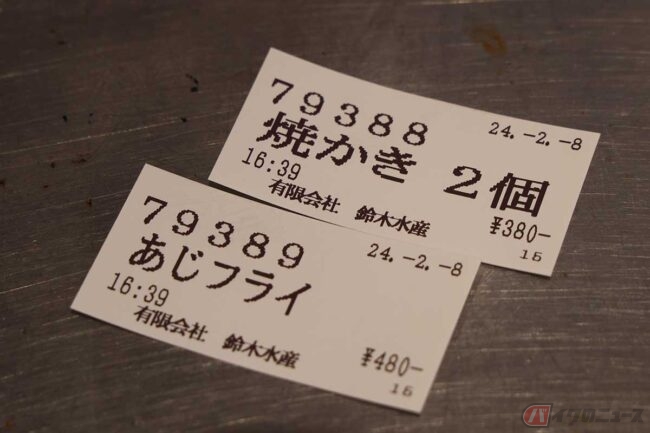 79388
24.-2.-8
焼かき 2個
16:39
有限会社 鈴木水産
¥380-
15
79389
24.-2.-8
あじフライ
16:39
有限会社 鈴木水産
¥480-
15
バイクのニュース